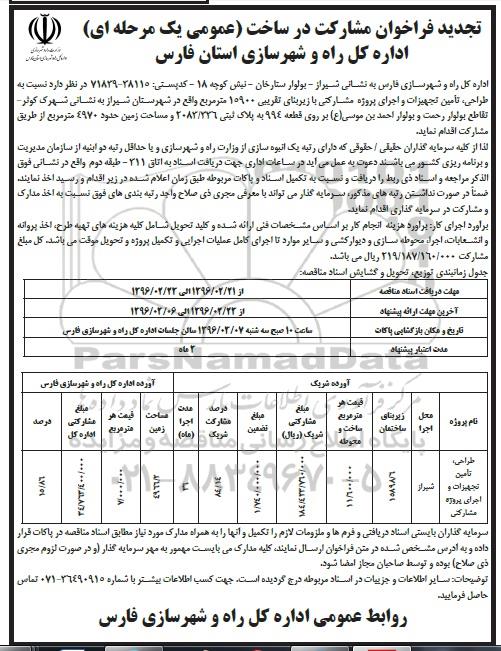 تجدید فراخوان مشارکت در ساخت (عمومی یک مرحله ای)
اداره کل راه و شهرسازی استان فارس
اداره کل راه و شهرسازی فارس به نشانی شیراز - بولوار ستارخان - نبش کوچه ۱۸ - کدپستی: ۳۸۱۱۵-۷۱۸۳۹ در نظر دارد نسبت به
طراحی، تأمین تجهیزات و اجرای پروژه مشارکتی با زیربنای تقریبی ۱۵۹۰۰ مترمربع واقع در شهرستان شیراز به نشانی شهرک کوثر-
تقاطع بولوار رحمت و بولوار احمد بن موسی(ع) بر روی قطعه ۹۹۴ به پلاک ثبتی ۲۰۸۲/۳۳۶ و مساحت زمین حدود ۴۹۷۰ مترمربع از طریق
مشارکت اقدام نماید.
لذا از کلیه سرمایه گذاران حقیقی / حقوقی که دارای رتبه یک انبوه سازی از وزارت راه و شهرسازی و یا حداقل رتبه دو ابنیه از سازمان مدیریت
و برنامه ریزی کشور می باشند دعوت به عمل می آید در ساعات اداری جهت دریافت اسناد به اتاق ۲۱۱ - طبقه دوم واقع در نشانی فوق
الذکر مراجعه و اسناد ذی ربط را دریافت و نسبت به تکمیل اسناد و پاکات مربوطه طبق زمان اعلام شده در زیر اقدام و رسید اخذ نمایند.
ضمناً در صورت نداشتن رتبه های مذکور، سرمایه گذار می تواند با معرفی مجری ذی صلاح واجد رتبه بندی های فوق نسبت به اخذ مدارک
و مشارکت در سرمایه گذاری اقدام نماید.
برآورد اجرای کار: برآورد هزینه انجام کار بر اساس مشخصات فنی ارائه شده و کلید تحویل شامل کلیه هزینه های تهیه طرح، اخذ پروانه
و انشعابات، اجرا، محوطه سازی و دیوارکشی و سایر موارد تا اجرای کامل عملیات اجرایی و تکمیل پروژه و تحویل موقت می باشد. کل مبلغ
مشارکت ۲۱۹/۱۸۷/۱۶۰/۰۰۰ ریال می باشد.
جدول زمانبندی توزیع، تحویل و گشایش اسناد مناقصه:
مهلت دریافت اسناد مناقصه از ۱۳۹۶/۰۲/۲۱ الی ۱۳۹۶/۰۲/۲۳
آخرین مهلت ارائه پیشنهاد از ۱۳۹۶/۰۲/۲۳ الی ۱۳۹۶/۰۳/۰۶
تاریخ و مکان بازگشایی پاکات ساعت ۱۰ صبح سه شنبه ۱۳۹۶/۰۳/۰۷ سالن جلسات اداره کل راه و شهرسازی فارس
مدت اعتبار پیشنهاد ۳ ماه
آورده شریک آورده اداره کل راه و شهرسازی فارس
نام پروژه محل اجرا زیربنای ساختمان قیمت هر مترمربع ساخت و محوطه مبلغ مشارکتی شریک (ریال) مبلغ تضمین درصد مشارکت شریک مدت اجرا (ماه) مساحت زمین قیمت هر مترمربع مبلغ مشارکتی اداره کل درصد
طراحی، تأمین تجهیزات و اجرای پروژه مشارکتی شیراز ۱۵۸۹۸/۶ ۱۱/۶۰۰/۰۰۰ ۱۸۴/۴۲۳/۷۶۰/۰۰۰ ۱/۷۴۰/۰۰۰/۰۰۰ ۸۴/۱۴ ۳۶ ۴۹۶۶/۲ ۷/۰۰۰/۰۰۰ ۳۴/۷۶۳/۴۰۰/۰۰۰ ۱۵/۸۶
سرمایه گذاران بایستی اسناد دریافتی و فرم ها و ملزومات لازم را تکمیل و آنها را به همراه مدارک مورد نیاز مطابق اسناد مناقصه در پاکات قرار
داده و به آدرس مشخص شده در متن فراخوان ارسال نمایند، کلیه مدارک می بایست ممهور به مهر سرمایه گذار (و در صورت لزوم مجری
ذی صلاح) بوده و توسط صاحبان مجاز امضا شود.
توضیحات: سایر اطلاعات و جزییات در اسناد مربوطه درج گردیده است. جهت کسب اطلاعات بیشتر با شماره ۳۶۴۹۰۹۱۵-۰۷۱ تماس
حاصل فرمایید.
روابط عمومی اداره کل راه و شهرسازی فارس
ParsNamadData
۰۲۱-۸۸۳۴۹۶۷۰-۵